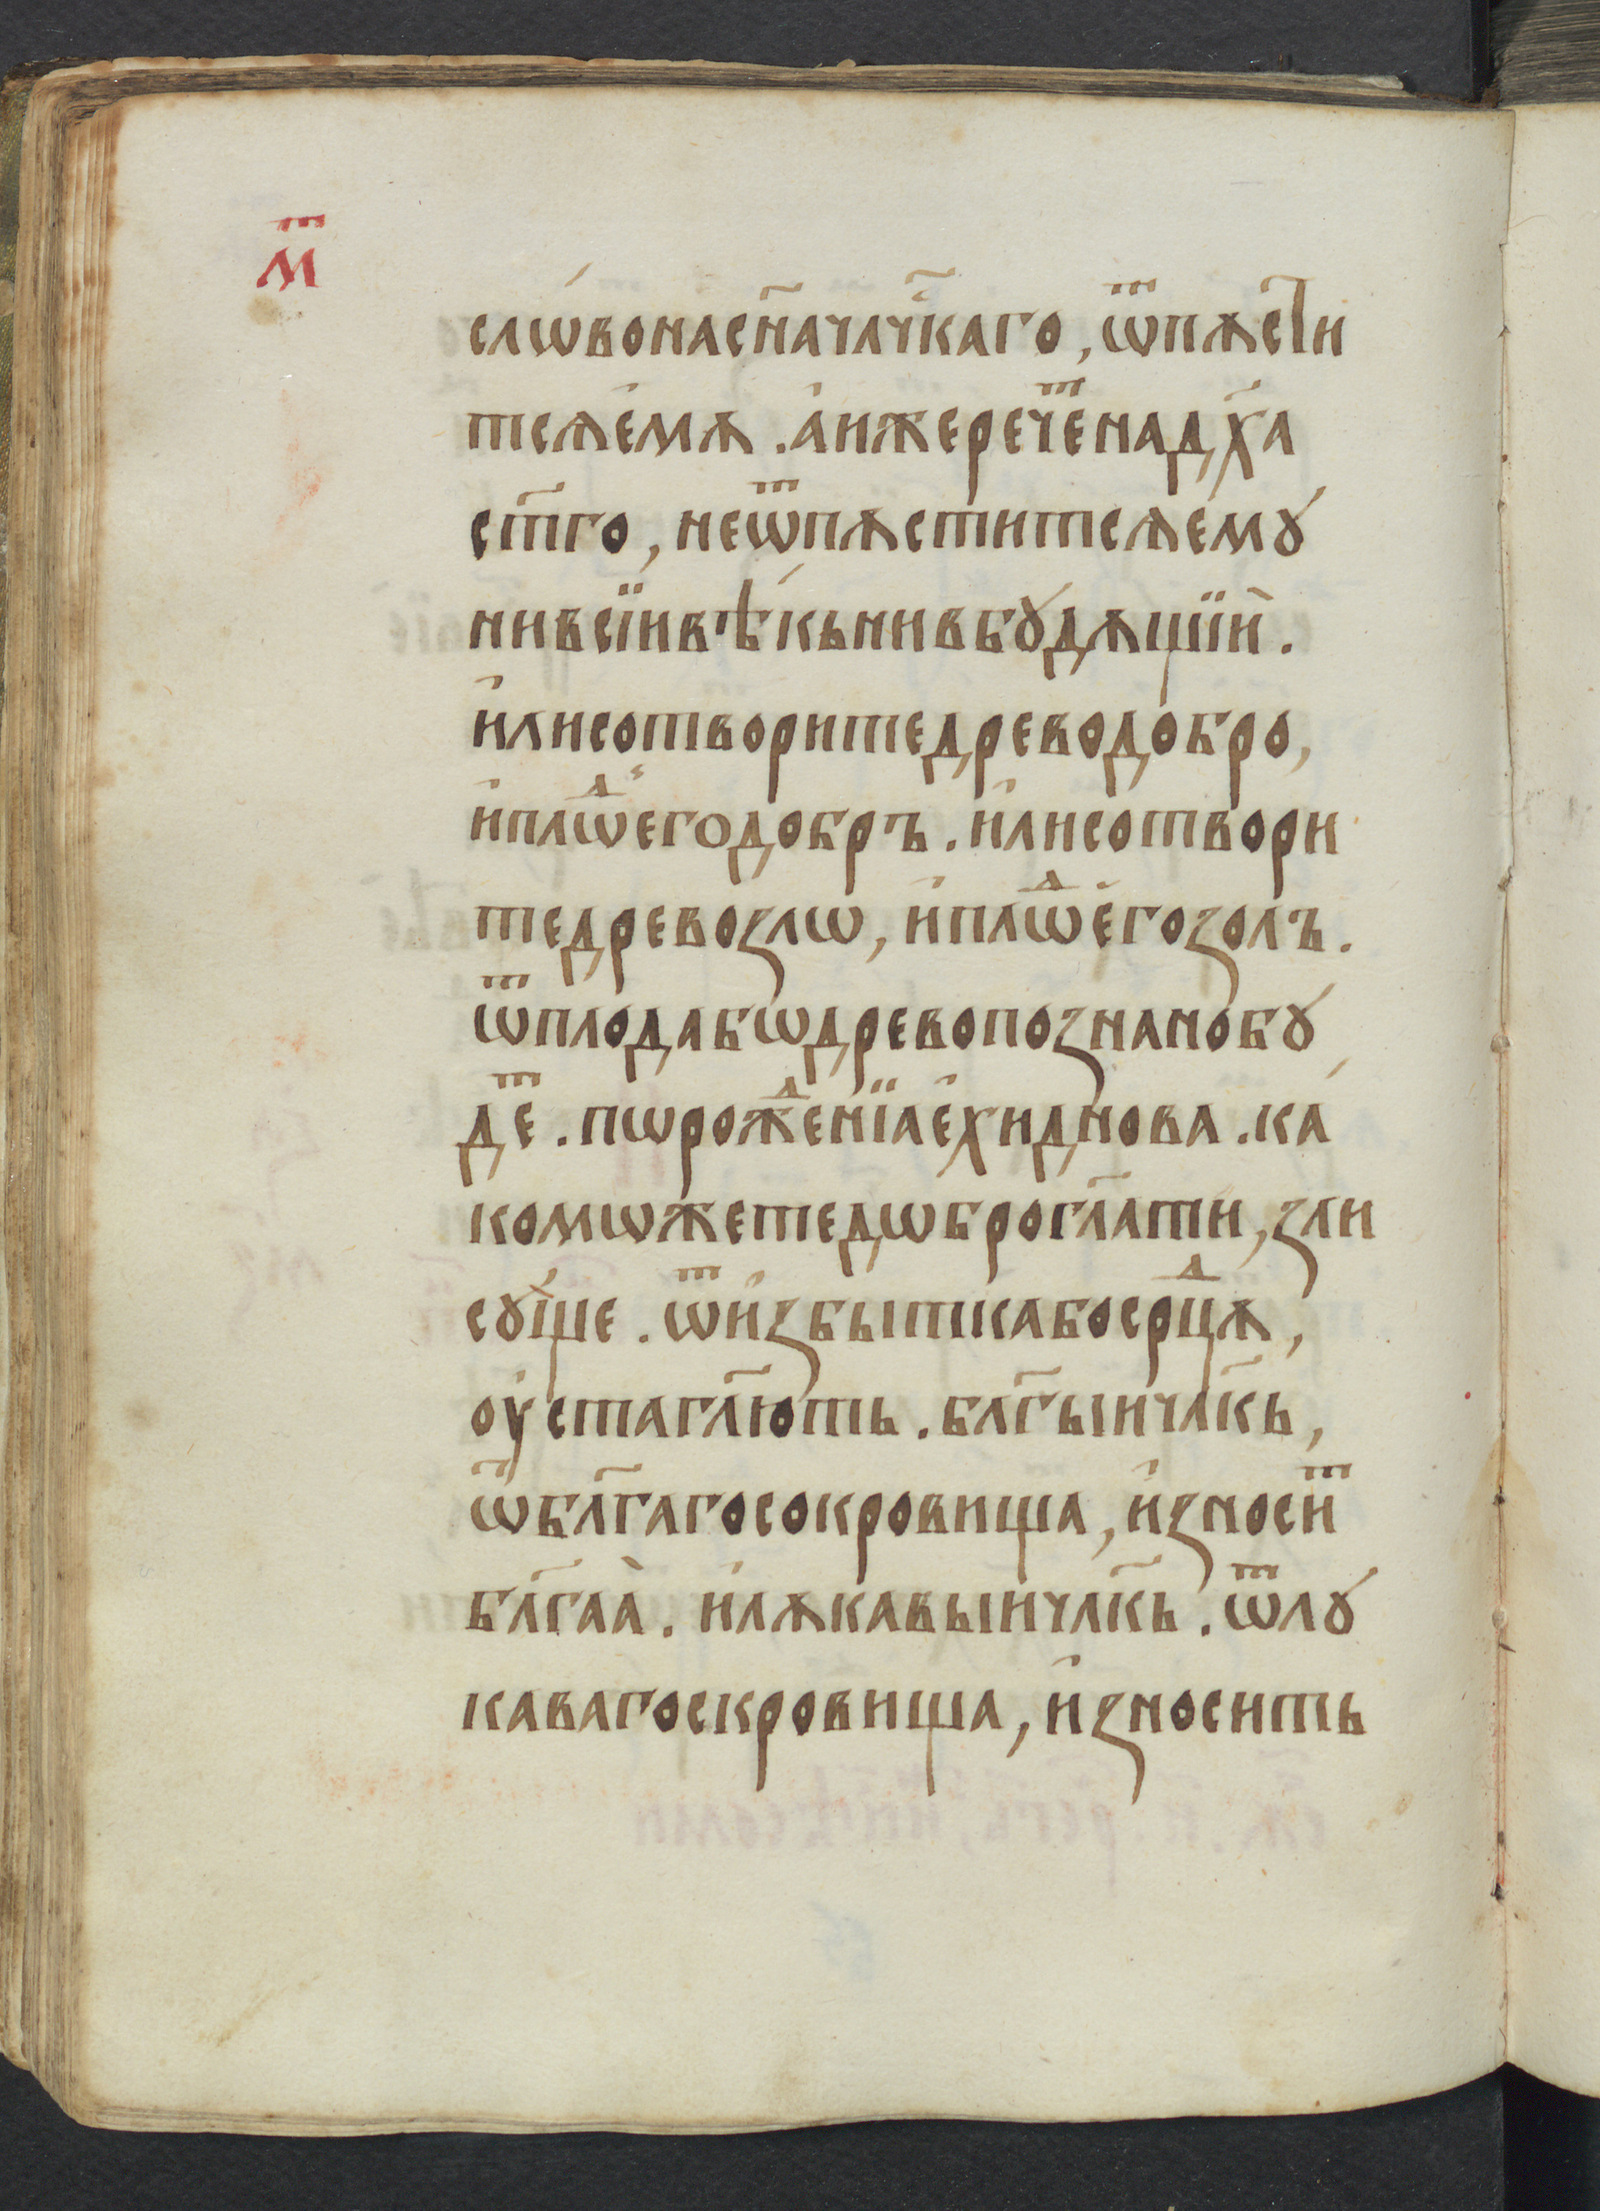 м҃
слѡ́вонасн҃ачл҃чкаго, ѿпѫсти
тсѧемѫ. а҆ижереч҃енадх҃а
ст҃го, неѿпѫститсѧемꙋ
нивсїивѣ́кънивбꙋдѫщїи.
и҆лисотворитедреводобро,
и҆плѡⷣегодобръ. и҆лисотвори
тедревозлѡ, и҆плѡⷣегозолъ.
ѿплодабѡдревопознанобꙋ
деⷮ. пѡрожⷣенїаехиднова. ка́
комѡжетедѡброгл҃ати, зли
сꙋ́ще. ѿи҆збыткабосрⷣцѧ,
оу҆стагл҃ють. бл҃гыичл҃къ,
ѿбл҃гагосокровища, и҆зносиⷮ
бл҃гаа. и҆лѫкавыичл҃къ. ѿлꙋ
кавагоскровища, и҆зносить